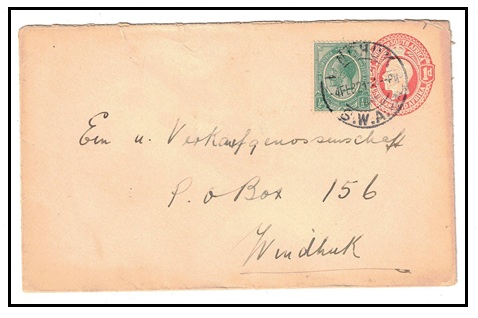 S.W.A.
1d
Ein u. Verkaufgenossenschaft
P.o Box 156
Windhuk